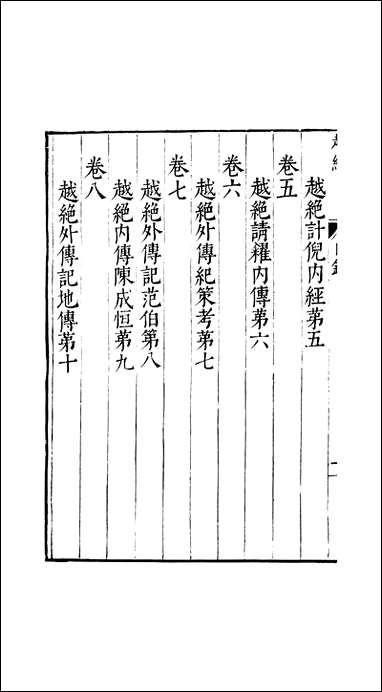 越絕計倪内經第五
卷五
越絕請糴内傳第六
卷六
越絕外傳紀策考第七
卷七
越絕外傳記范伯第八
越絕内傳陳成恒第九
卷八
越絕外傳記地傳第十